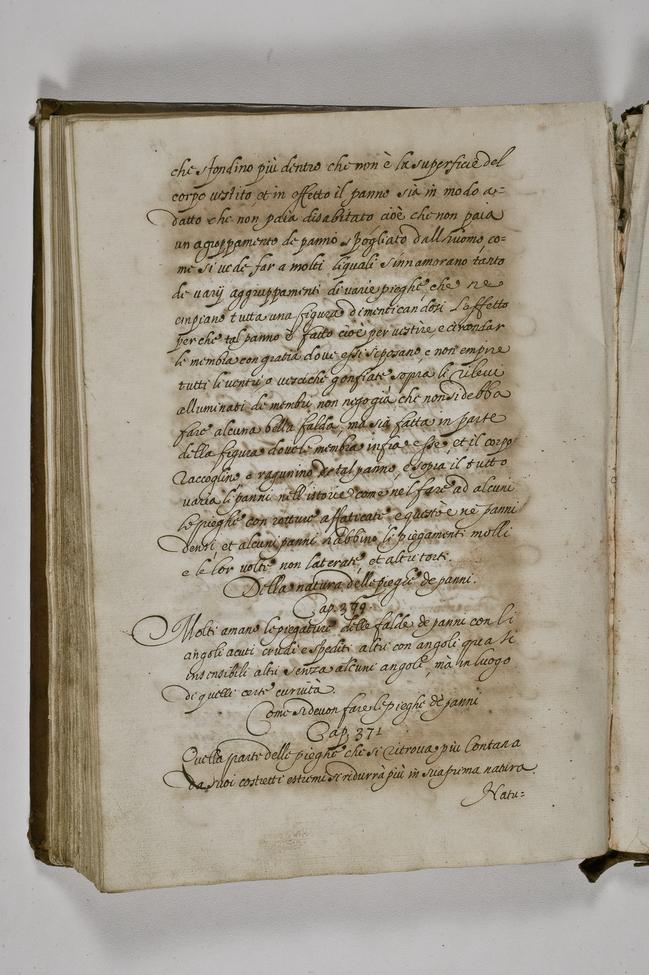 che sfondino più dentro che non è la superficie del
corpo vestito et in effetto il panno sia in modo a=
datto che non paia disabitato cioè che non paia
un aguppamento de panno spogliato dall huomo, co=
me si vede far a molti liquali s'innamorano tanto
de varij aggruppamenti di varie pieghe che ne
empiano tutta una figura dimenticandosi l'effetto
perche tal panno è fatto cioè per vestire, e circondar
le membra con gratia dove essi si posano, e non empire
tutti li ventri o vesciche gonfiate sopra li rilevi
alluminati de membri, non nego già che non si debba
fare alcuna bella falda, ma sia fatta in parte
della figura dove le membra infra esse et il corpo
raccoglino e ragunino tal panno, e sopra il tutto
varia li panni nell istorie come nel fare ad alcuni
le pieghe con rotture affaticate e questo è ne panni
densi, et alcuni panni habbino li piegamenti molli
e le lor volte non laterate, et altri torti.
Della natura delle pieghe de panni.
Cap. 379.
Molti amano le piegature delle falde de panni con li
angoli acuti crudi e spediti altri con angoli quasi
insensibili altri senza alcuni angoli, mà in luogo
di quelli certe curvità.
Come si devon fare le pieghe de panni
Cap. 371
Quella parte delle pieghe che si ritrova più lontana
da suoi costretti estremi si ridurrà più in sua prima natura
Natu=